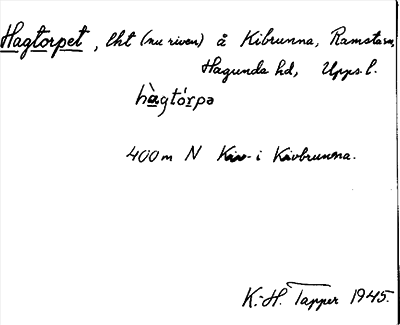 Hagtorpet, lht (nu riven) å Kibrunna, Ramsta sn,
Hagunda hd, Upps. l.
hàgtórpə
400 m N i Kivbrunna.
K.-H. Tapper 1945.